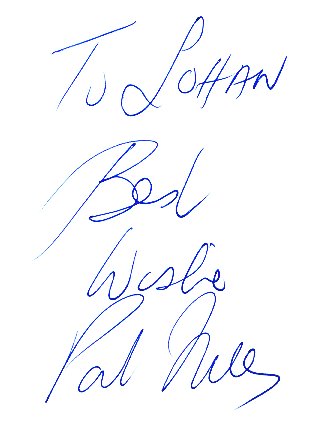 To LOHAN
Best
Wishe
Pat